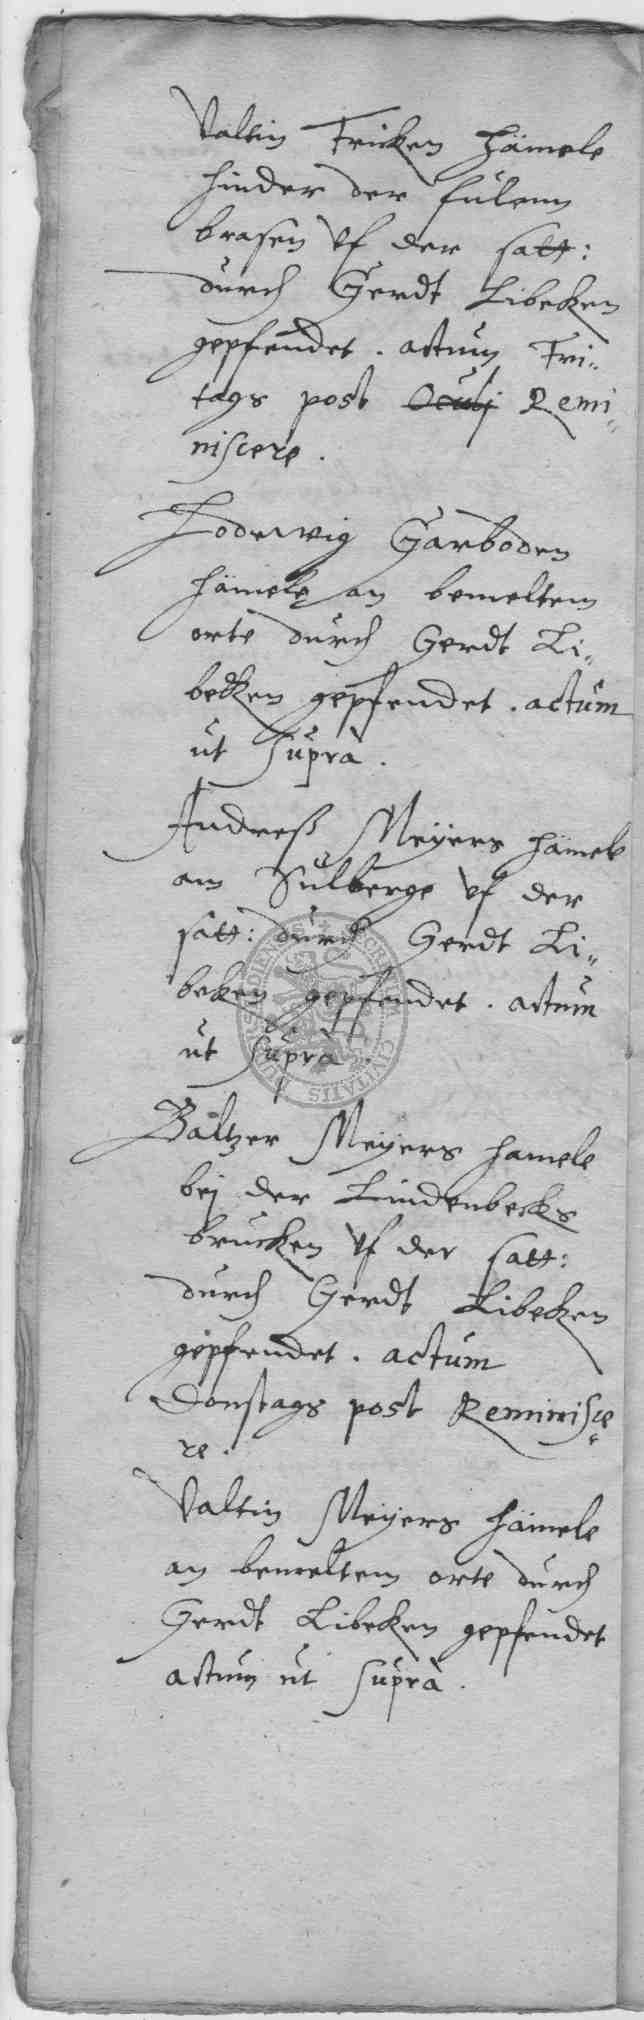 Valtin Fricken hämele
hinder der fulenn
brasen vf der satt:
durch Gerdt Libecken
gepfendet. actum Fri⸗
tags post Oculj Remi⸗
niscere.
Lodewig Garboden
hämele an bemeltem
orte durch Gerdt Li⸗
becken gepfendet. actum
ut suprà.
Andreß Meÿers hämele
am Sulberge vf der
satt: durch Gerdt Li⸗
beken gepfendet. actum
ut suprà.
Baltzer Meÿers hamele
bej der Lindenbecks
brucken vf der satt:
durch Gerdt Libecken
gepfendet. actum
Donstags post Reminisce⸗
re.
Valtin Meÿers hämele
an bemeltem orte durch
Gerdt Libecken gepfendet
actum ut suprà.